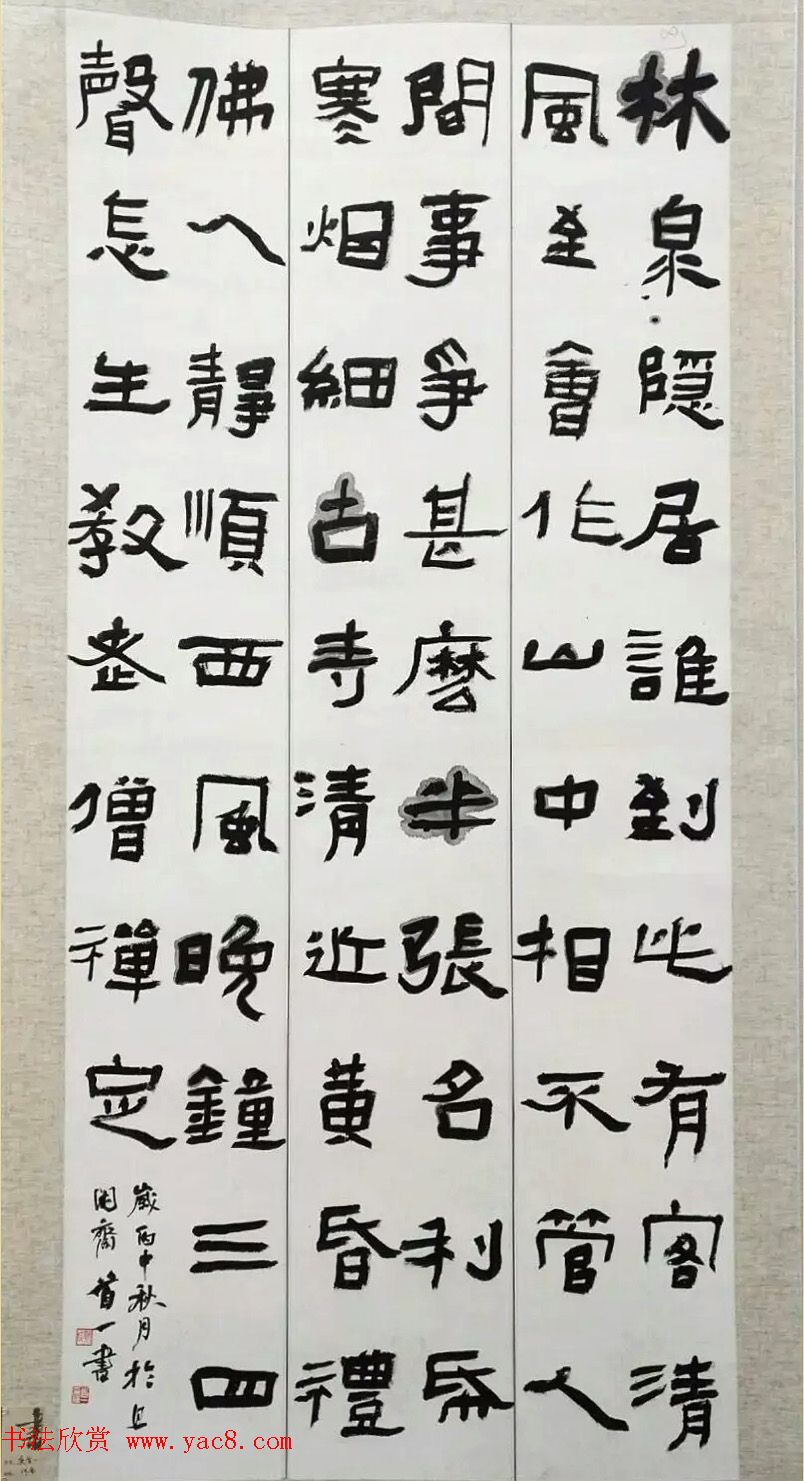 林泉隱居誰到此有客清
風至會作山中相不管人
間事爭甚麼半張名利帋
寒烟細古寺清近黃昏禮
佛人靜順西風晚鐘三四
聲怎生教老僧禪定
歲丙申秋月於且
閑齋一書
书法欣赏 www.yac8.com